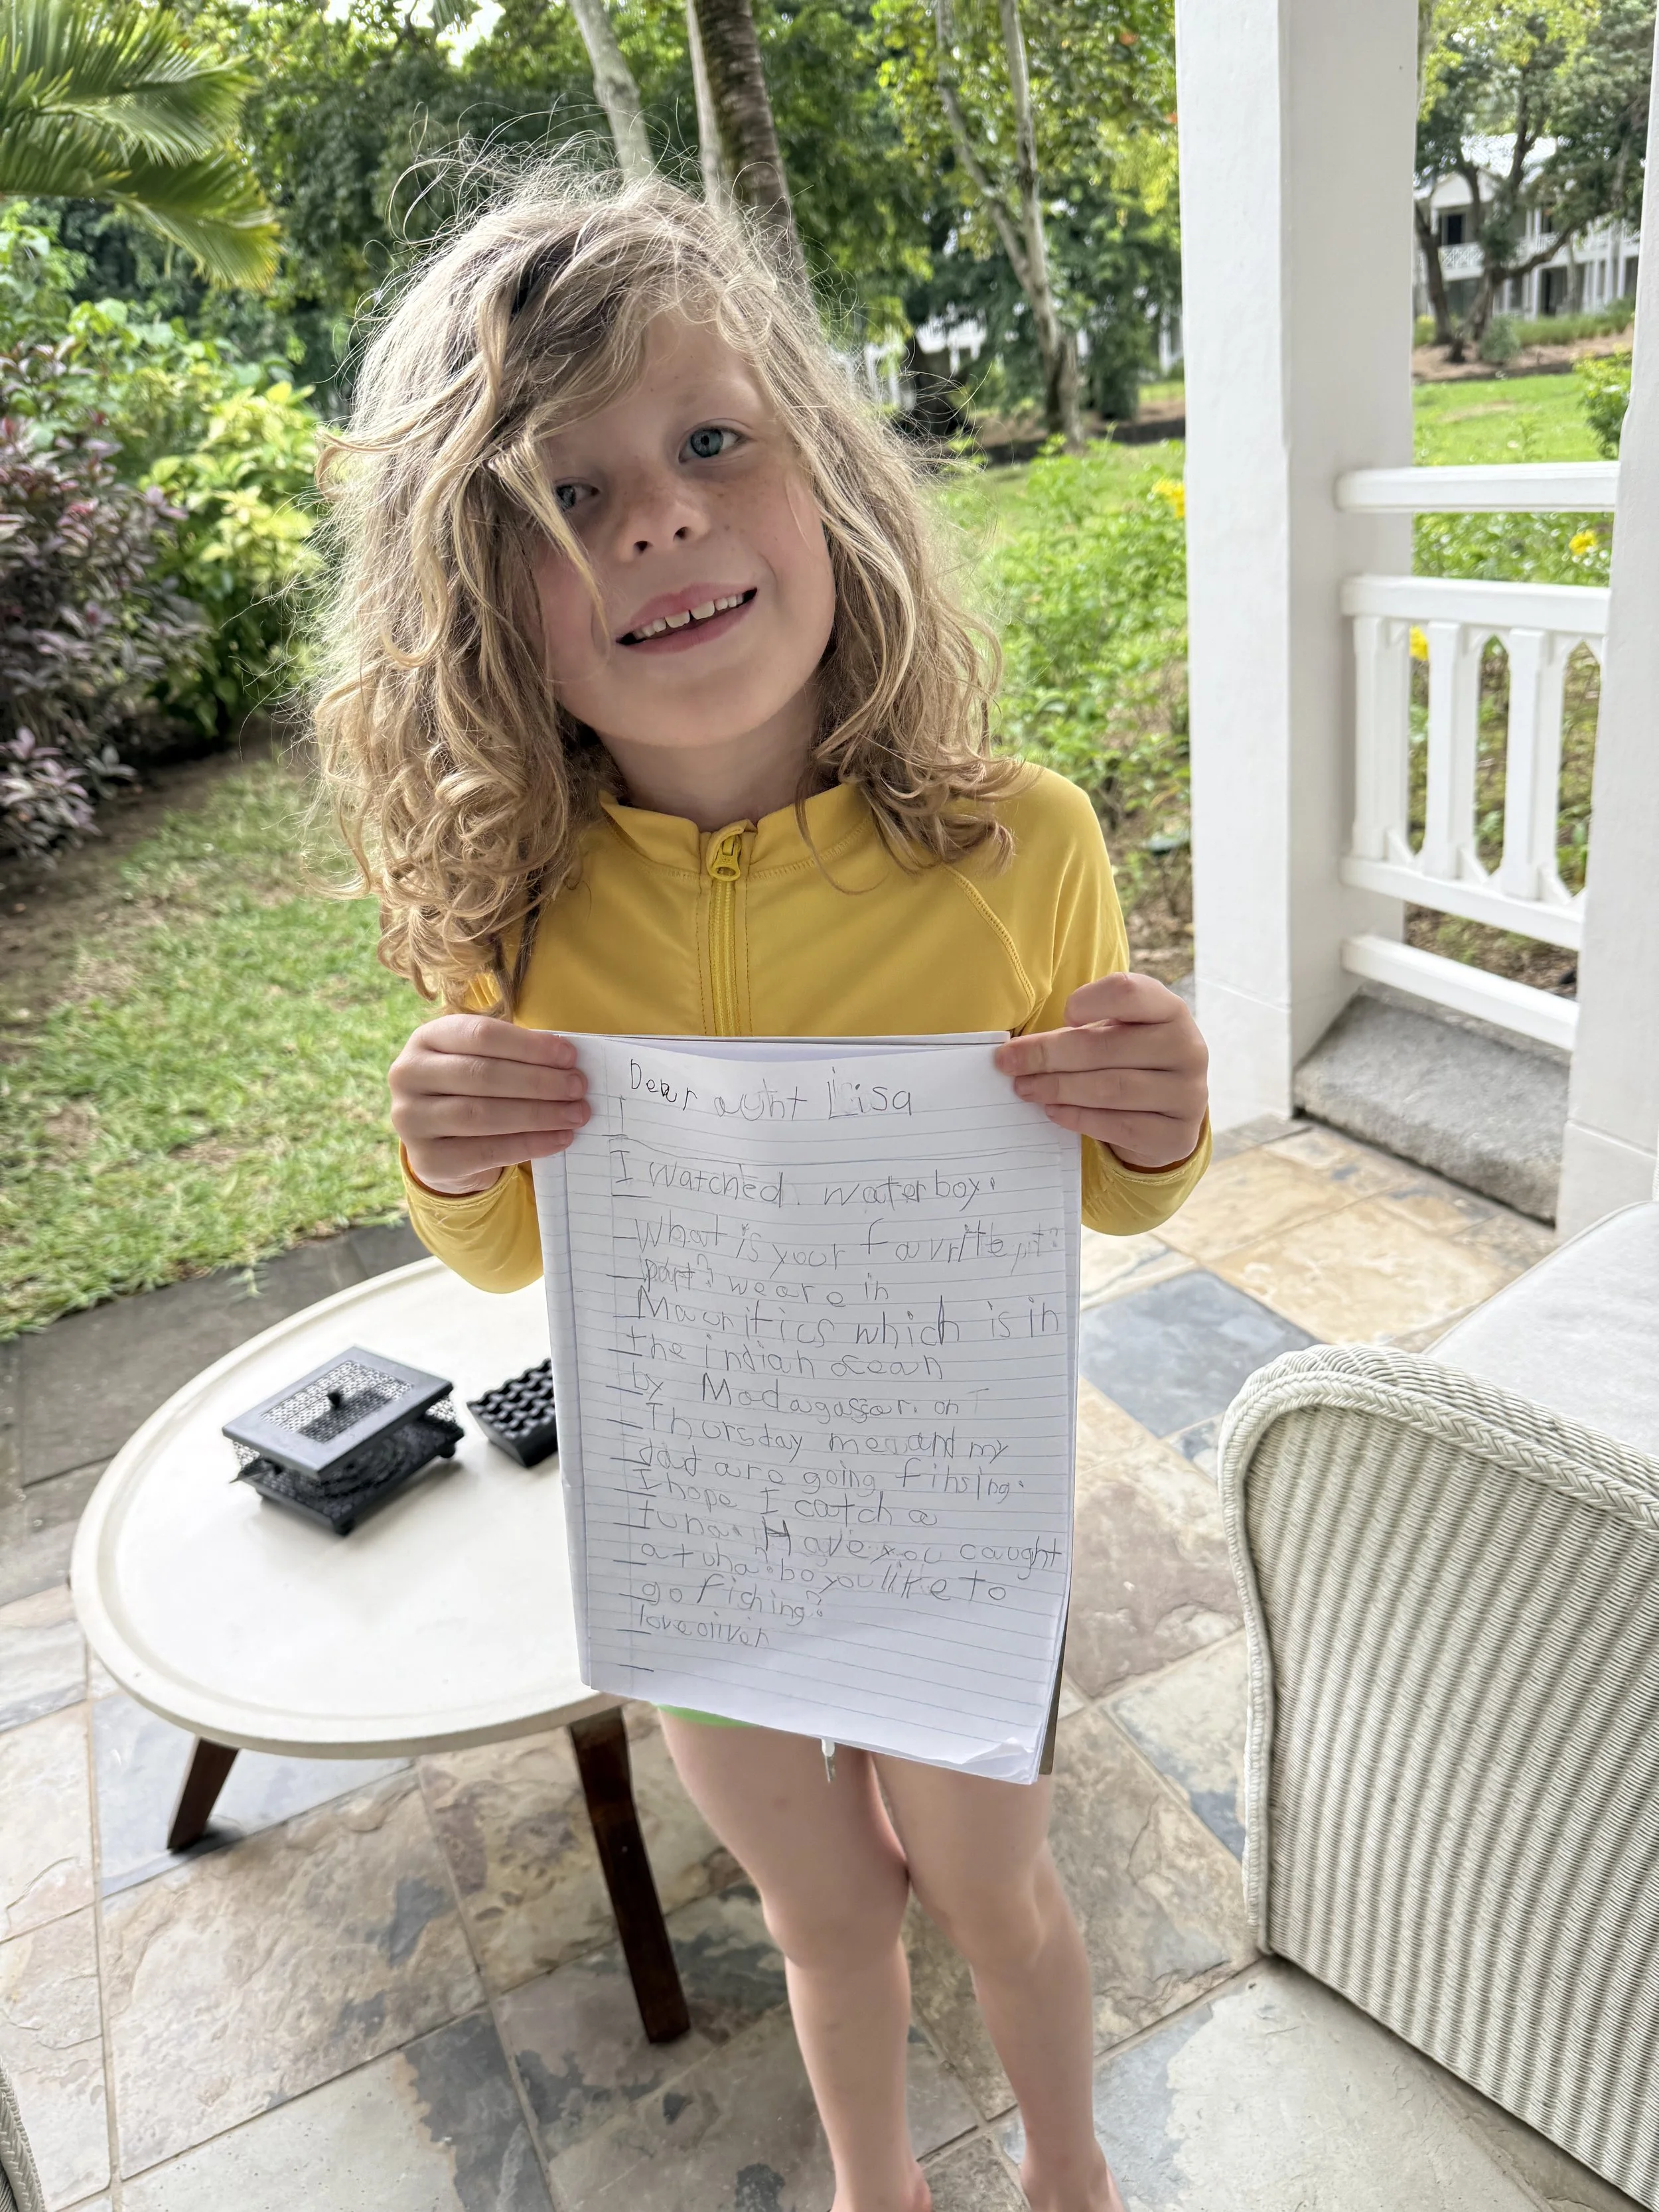 Dear auht Lisa
I
I watched. waterboy.
what is your favrite
part? we are in
Mauritics which is in
the indian ocean
by Madagascar. on T
Thursday me and my
dad are going fihsing.
I hope I catch a
tuna. Have you caught
a tuha. bo you like to
go fishing?
love oliver